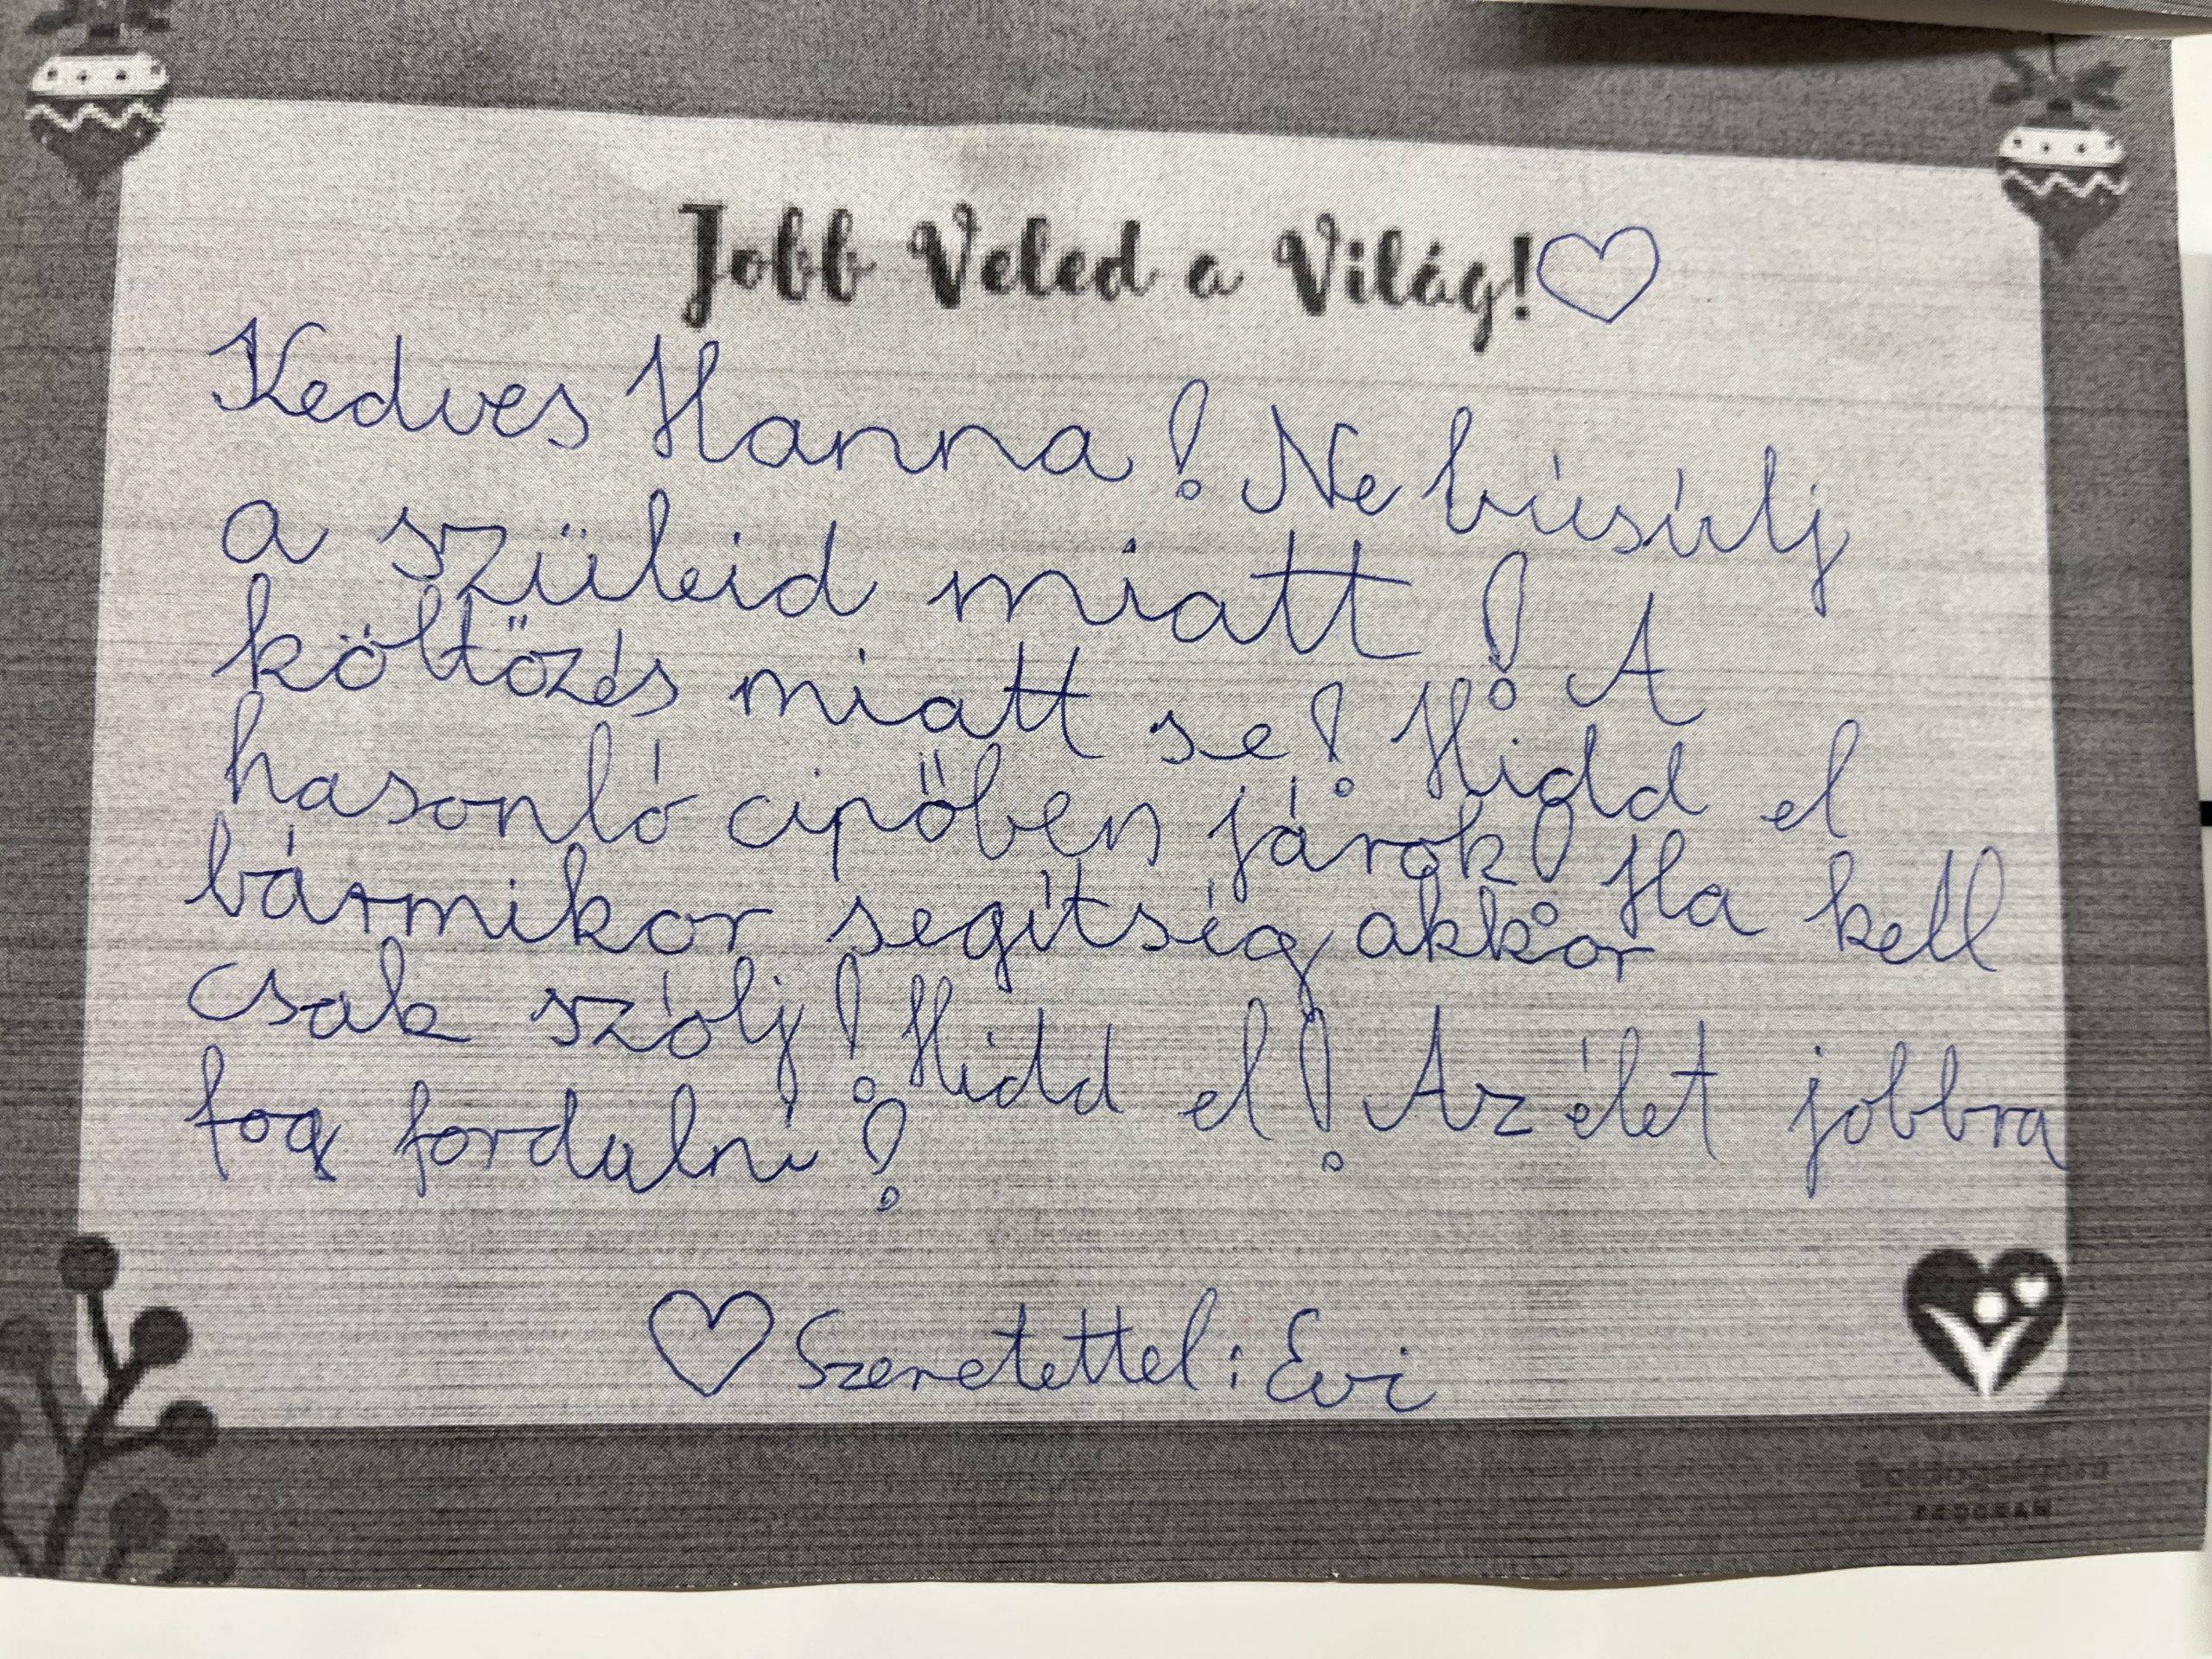 Jobb Veled a Világ!
Kedves Hanna! Ne búsúlj
a szüleid miatt! A
költőzés miatt se! Hidd el
hasonló cipőben járok! Ha kell
bármikor segítség akkor
csak szólj! Hidd el! Az élet jobbra
fog fordulni!
Szeretettel: Evi
PROGRAM